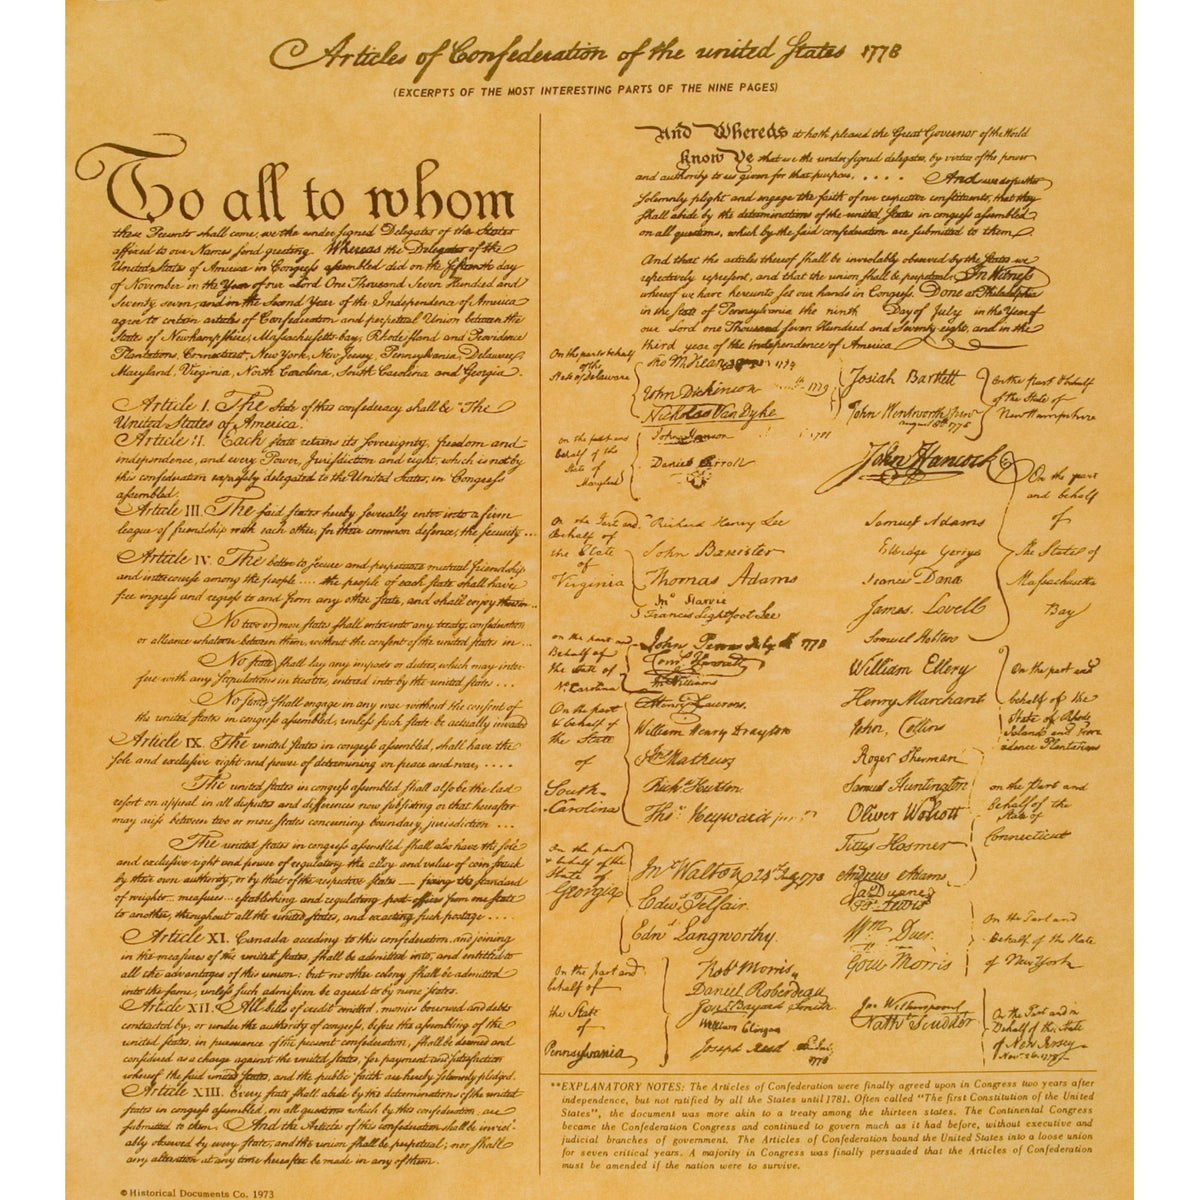 Articles of Confederation of the united States 1778
(EXCERPTS OF THE MOST INTERESTING PARTS OF THE NINE PAGES)
To all to whom
these Presents shall come, we the under signed Delegates of the States
affixed to our Names send greeting. Whereas the Delegates of the
United States of America in Congress assembled did on the fifteenth day
of November in the Year of our Lord One Thousand Seven Hundred and
Seventy seven, and in the Second Year of the Independence of America
agree to certain articles of Confederation and perpetual Union between the
States of Newhampshire, Massachusetts-bay, Rhodeisland and Providence
Plantations, Connecticut, New York, New Jersey, Pennsylvania, Delaware,
Maryland, Virginia, North Carolina, South Carolina and Georgia.
Article I. The stile of this confederacy shall be "The
United States of America.
Article II. Each state retains its sovereignty, freedom and
independence, and every Power, Jurisdiction and right, which is not by
this confederation expressly delegated to the United States, in Congress
assembled.
Article III. The said states hereby severally enter into a firm
league of friendship with each other, for their common defence, the security ...
Article IV. The better to secure and perpetuate mutual friendship
and intercourse among the people .... the people of each state shall have
free ingress and regress to and from any other State, and shall enjoy therein...
No two or more states shall enter into any treaty, confederation
or alliance whatever between them, without the consent of the united states in ...
No state shall lay any imposts or duties, which may inter-
fere with any stipulations in treaties, entered into by the united states ...
No state shall engage in any war without the consent of
the united states in congress assembled, unless such state be actually invaded
Article IX. The united states in congress assembled, shall have the
sole and exclusive right and power of determining on peace and war, ....
The united states in congress assembled shall also be the last
resort on appeal in all disputes and differences now subsisting or that hereafter
may arise between two or more states concerning boundary, jurisdiction ...
The united states in congress assembled shall also have the sole
and exclusive right and power of regulating the alloy and value of coin struck
by their own authority, or by that of the respective states — fixing the standard
of weights .. measures ... establishing and regulating post-offices from one state
to another, throughout all the united states, and exacting such postage ....
Article XI. Canada acceding to this confederation, and joining
in the measures of the united states, shall be admitted into, and entitled to
all the advantages of this union: but no other colony shall be admitted
into the same, unless such admission be agreed to by nine states.
Article XII. All bills of credit emitted, monies borrowed and debts
contracted by, or under the authority of congress, before the assembling of the
united states, in pursuance of the present confederation, shall be deemed and
considered as a charge against the united states, for payment and satisfaction
whereof the said united states, and the public faith are hereby solemnly pledged.
Article XIII. Every state shall abide by the determinations of the united
states in congress assembled, on all questions which by this confederation are
submitted to them. And the Articles of this confederation shall be invio-
ably observed by every state, and the union shall be perpetual; nor shall
any alteration at any time hereafter be made in any of them.
© Historical Documents Co. 1973
And Whereas it hath pleased the Great Governor of the World
Know Ye that we the undersigned delegates, by virtue of the power
and authority to us given for that purpose, .... And we do further
solemnly plight and engage the faith of our respective constituents, that they
shall abide by the determinations of the united States in congress assembled
on all questions, which by the said confederation are submitted to them
And that the articles thereof shall be inviolably observed by the States we
respectively represent, and that the union shall be perpetual. In Witness
whereof we have hereunto set our hands in Congress. Done at Philadelphia
in the State of Pennsylvania the ninth Day of July in the Year of
our Lord one Thousand seven Hundred and Seventy eight, and in the
third year of the independence of America
On the part & behalf
of the
State of Delaware
Tho McKean
John Dickinson 1779
Nicholas Van Dyke
on the part and
behalf of the
State of
Maryland
John Hanson
Daniel Carroll
On the Part and
Behalf of
the State
of
Virginia
Richard Henry Lee
John Banister
Thomas Adams
Jno Harvie
Francis Lightfoot Lee
on the part and
Behalf of
the State of
No Carolina
John Penn July 1778
Corns Harnett
Jno Williams
On the part
& behalf of
the State
of
South-
Carolina
Henry Laurens.
William Henry Drayton
Jno Mathews
Richd Hutson
Thos Heyward junr
On the part
& behalf of the
State of
Georgia
Jno Walton 24th July 1778
Edwd Telfair.
Edwd Langworthy.
On the part and
behalf of
the State
of
Pennsylvania
Robt Morris
Daniel Roberdeau
Jona Bayard Smith
William Clingan
Joseph Reed 1778
Josiah Bartlett
John Wentworth Junr
august 8th 1778
On the part & behalf
of the State of
New Hampshire
John Hancock
Samuel Adams
Elbridge Gerry
Francis Dana
James Lovell
Samuel Holten
On the part
and behalf
of
The State of
Massachusetts
Bay
William Ellery
Henry Marchant
John Collins
On the part and
behalf of the
State of Rhode
Island and Prov-
idence Plantations
Roger Sherman
Samuel Huntington
Oliver Wolcott
Titus Hosmer
Andrew Adams
on the Part and
behalf of the
State of
Connecticut
Jas Duane
Fra Lewis
Wm Duer
Gouv Morris
On the Part and
Behalf of the State
of New York
Jno Witherspoon
Nathl Scudder
On the Part and in
Behalf of the State
of New Jersey
Nov 26. 1778
**EXPLANATORY NOTES: The Articles of Confederation were finally agreed upon in Congress two years after
independence, but not ratified by all the States until 1781. Often called "The first Constitution of the United
States", the document was more akin to a treaty among the thirteen states. The Continental Congress
became the Confederation Congress and continued to govern much as it had before, without executive and
judicial branches of government. The Articles of Confederation bound the United States into a loose union
for seven critical years. A majority in Congress was finally persuaded that the Articles of Confederation
must be amended if the nation were to survive.